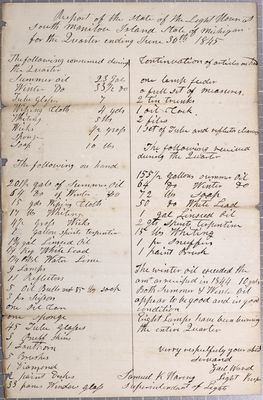 Report of the State of the Light House at
South Manitou Island State of Michigan
for the Quarter ending June 30th 1845
The following consumed during
the Quarter
Summer oil 23 gals
Winter Do 33½ do
Tube Glass 7
Wiping Cloth 4 yds
Whiting 5 lbs
Wicks ½ gross
Soap 10 lbs
The following on hand
gallons of Summer Oil
Do of Winter do
15 yds Wiping Cloth
17 lbs Whiting
Gross Wicks
gallon spirits Turpentine
gal Linseed Oil
White Lead
Lamps
Reflectors
5 Oil Butts
one Oil Can
one
45 Tube Glasses
Brushes
Diamond
33 panes Window glass
Continuation of articles on hand
one lamp feeder
a full set of measures
2 tin trunks
1 oil Clock
2 files
1 Set of Tube and reflector cleaners
The following received
during the Quarter
155½ gallons summer oil
64 Do Winter Do
72 lbs Soap
50 do White Lead
gal Linseed Oil
2 qts Spirits turpentine
15 lbs Whiting
1 pr
1 paint Brush
The winter oil exceeded the
amt received in 1844 10 gals
Both Summer & Winter Oil
appear to be good and in good
condition
Eight Lamps have been burning
the entire Quarter
very respectfully your obt
Ward
Light Keep
Samuel K Haring
Superintendent of Lights